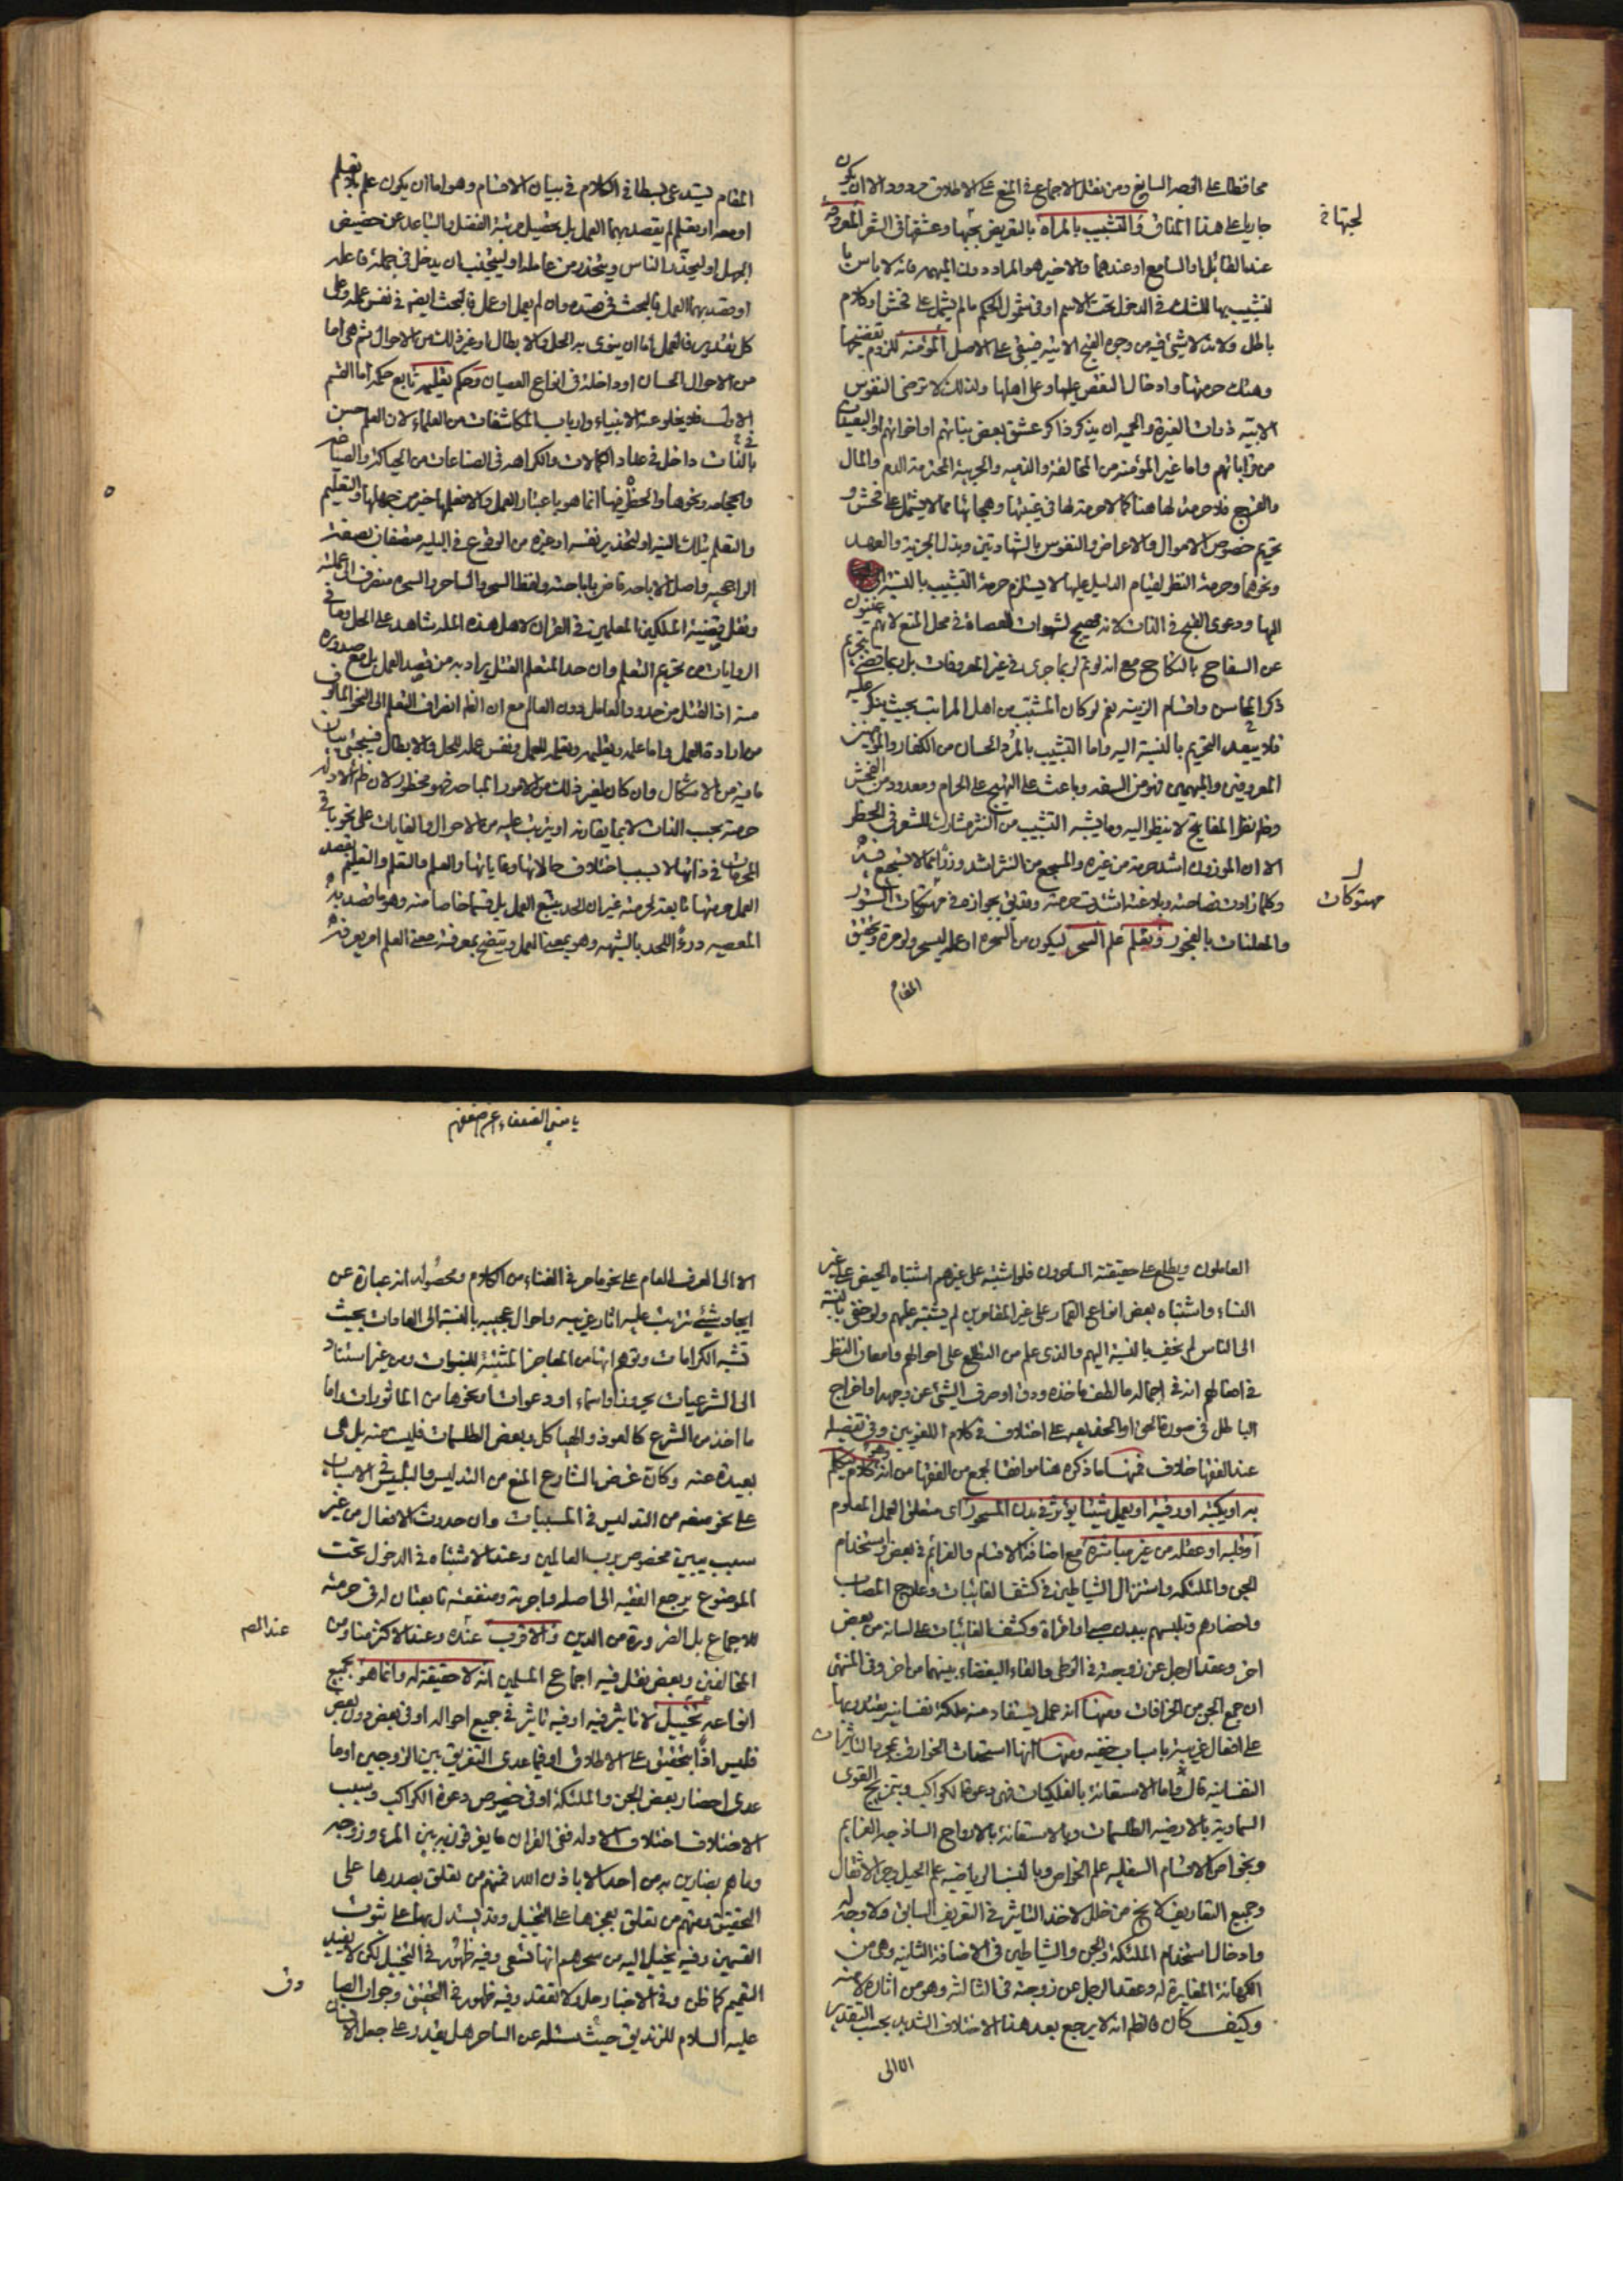 محافظا على الحصر السابق ومن نقل الاجماع في المنع على الاطلاق مردود الا ان يكون
جاريا على هذا المذاق والتشبيب بالمراة بالتعريض بحبها وعشقها في الشعر المعروفة
لجبهاتي
عند القائل او السامع او عندهما والاخير هو المراد دون المبهمة فانه لا باس با
لتشبيب بها للشك في الدخول تحت الاسم او في شمول الحكم ما لم يشمل على فحش او كلام
باطل ولانه لا شئ فيه من وجوه القبح الاتية فيبقى على الاصل المؤمنة للزوم تفضيحها
وهتك حرمتها وادخال النقص عليها وعلى اهلها ولذلك لا ترضى النفوس
الابية ذوات الغيرة والحمية ان يذكر ذاكر عشق بعض بناتهم او اخواتهم او البعيدات
من قراباتهم واما غير المؤمنة من المخالفة والذمية والحربية المحترمة الدم والمال
والفرج فلا حرمة لها هنا كما لا حرمة لها في غيبتها وهجائها مما لا يشتمل على فحش و
تحريم خصوص الاموال والاعراض والنفوس بالشهادتين وبذل الجزية والعهد
ونحوهما وحرمة النظر لقيام الدليل عليها لا يستلزم حرمة التشبيب بالنسبة
اليها ودعوى القبح في الذات لانه مهيج لشهوات العصاة في محل المنع لانهم غنيون
عن السفاح بالنكاح مع انه لو تم لربما جرى في غير المعروفات بل ربما قضى بتحريم
ذكر المحاسن واقسام الزينة نعم لو كان المشبب من اهل المراتب بحيث ينكر عليه
فلا يبعد التحريم بالنسبة اليه واما التشبيب بالمرد الحسان من الكفار والمؤمنين
المعروفين والمبهمين فهو من السفه وباعث على التهيج على الحرام ومعدود من الفحش
وظهر نظر المفاتيح لا ينظر اليه وما يشبه التشبيب من النثر مشارك للشعر في الحظر
الا ان الموزون اشد حرمة من غيره والمسجع من النثر اشد وزرا مما لا سجع فيه
وكلما زادت فصاحته وبلاغته اشتدت حرمته وقد يق بجوازه في مهتوكات الستور
مهتوكات
والمعلنات بالفجور وتعلم علم السحر ليكون من السحرة او عمله ليسحر ولو مرة وتحقيق
المقام
المقام يستدعى بسطا في الكلام في بيان الاقسام وهو اما ان يكون علم بلا تعلم
او معه او تعلم لم يقصد بهما العمل بل تحصيل مرتبة الفضل والتباعد عن حضيض
الجهل او ليحذر الناس ويتحذر من عامله او ليتجنب ان يدخل في جملة فاعله
او قصد بهما العمل فالبحث في قصده وان لم يعمل او عمل فالبحث ايضم في نفس عمله وعلى
كل تقدير فالعمل اما ان ينوى به الحل والابطال او غير ذلك من الاحوال ثم هي اما
من الاحوال الحسان او داخلة في انواع العصيان وحكم تعليمه تابع حكمه اما القسم
الاول فلا يخلو عنه الانبياء وارباب المكاشفات من العلماء لان العلم حسن
بالذات داخل في عداد الكمالات والكراهه في الصناعات من الحياكة والصياغة
والحجامه ونحوها والحظر فيها انما هو باعتبار العمل والا فعلمها خير من جهلها والتعليم
والتعلم بتلك النية او لتحذير نفسه او غيره من الوقوع في البلية متصفان بصفته
الراجحية واصل الاباحه قاض باباحته ولفظ السحر والساحر والسحرة منصرفة الى عملته
ونقل قضية الملكين المعلمين في القران لاهل هذه الملة شاهد على الحل وما في
الروايات من تحريم التعلم وان حد المتعلم القتل يراد به من قصد العمل بل مع صدوره
منه اذ القتل من حدود العامل دون العالم مع ان الظ انصراف التعلم الى النحو المالوف
من ارادة العمل واما علمه وتعليمه وتعلمه للعمل ونفس عمله للحل والابطال فسيجئ بيان
ما فيه من الاشكال وان كان لغير ذلك من الامور المباحة فهو محظور لان ظم الادلة
حرمته بحسب الذات لا بما يقارنه او يترتب عليه من الاحوال والغايات على نحو باقي
المحرمات في ذاتها لا بسبب اختلاف حالاتها وغاياتها والعلم والتعلم والتعليم بقصد
العمل حرمتها تابعة لحرمته غير ان الحد يتبع العمل بل قسما خاصا منه وهو ما قصد به
المعصيه درءا للحد بالشبهه وهو بمعنى العمل ويتضح بمعرفته معنى العلم امر يعرفه
العاملون ويطلع على حقيقته الساحرون فلو اشتبه على غيرهم اشتباه الحيض على غير
النساء واشتباه بعض انواع القمار على غير المقامرين لم يشتبه عليهم ولو خفى بالنسبة
الى الناس لم يخف بالنسبة اليهم والذى علم من التطلع على احوالهم وامعان النظر
في اعمالهم انه في اجماله ما لطف ماخذه ودق او صرف الشئ عن وجهه او اخراج
الباطل في صورة الحق او الخديعه على اختلاف في كلام اللغويين وفي تفصيله
عند الفقها خلاف فمنها ما ذكره هنا موافقا لجمع من الفقها من انه كلام يتكلم
به او يكتبه او رقية او يعمل شيئا يؤثر في بدن المسحور اى متعلق العمل المعلوم
او قلبه او عقله من غير مباشرة مع اضافة الاقسام والعزائم في بعض واستخدام
الجن والملئكه واستنزال الشياطين في كشف الغائبات وعلاج المصاب
واحضارهم وتلبسهم ببدن صبى او امراة وكشف الغائبات على لسانه من بعض
اخر وعقد الرجل عن زوجته في الوطى والقاء البغضاء بينهما من اخر وفي المنتهى
ان جمع الجن من الخرافات ومنها انه عمل يستفاد منه ملكة نفسانية يقتدر بها
على افعال غريبة باسباب خفيه ومنها انها استحداث الخوارق بمجرد التاثيرات
النفسانيه قال واما الاستعانة بالفلكيات فهى دعوة الكواكب وبتمزيج القوى
السماوية بالارضيه الطلسمات وبالاستعانة بالارواح الساذجه العزايم
وبخواص الاقسام السفليه علم الخواص وبالنسب الرياضيه علم الحيل وجر الاثقال
وجميع التعاريف لا يخ من خلل لاخذ التاثير في التعريف السابق ولا وجه له
وادخال استخدام الملئكة والجن والشياطين في الاضافة الثانيه وهى من
الكهانة المغايرة له وعقد الرجل عن زوجته في الثالثه وهو من اثاره لا منه
وكيف كان فالظم انه لا يرجع بعد هذا الاختلاف الشديد بحسب التقدير
الا الى
يا مقوى الضعفاء
الا الى العرف العام على نحو ما مر في الغناء من الكلام ومحصوله انه عبارة عن
ايجاد شيئ تترتب عليه اثار غريبه واحوال عجيبه بالنسبة الى العادات بحيث
تشبه الكرامات وتوهم انها من المعاجز المثبتة للنبوات ومن غير استناد
الى الشرعيات بحروف او اسماء او دعوات او نحوها من الماثورات واما
ما اخذ من الشرع كالعوذ والهياكل وبعض الطلسمات فليست منه بل هى
بعيدة عنه وكان غرض الشارع المنع من التدليس والتلبيس في الاسباب
على نحو منعه من التدليس في المسببات وان حدوث الافعال من غير
سبب يبين مخصوص برب العالمين وعند الاشتباه في الدخول تحت
الموضوع يرجع الفقيه الى اصله واجرته ومنفعته تابعتان له في حرمته
للاجماع بل الضرورة من الدين والاقرب عنده وعند الاكثر منا ومن
عند المص
المخالفين وبعض نقل فيه اجماع المسلمين انه لا حقيقة له وانما هو بجميع
انواعه تخييل لا تاثير فيه او فيه تاثير في جميع احواله او في بعض دون بعض
فليس اذا بتحقيق على الاطلاق او فيما عدى التفريق بين الزوجين او ما
عدى احضار بعض الجن والملئكة او في خصوص دعوة الكواكب وسبب
الاختلاف اختلاف الادلة ففى القران ما يفرقون به بين المرء وزوجه
وما هم بضارين به من احد الا باذن الله فمنهم من تعلق بصدرها على
التحقيق ومنهم من تعلق بعجزها على التخييل وقد يستدل بها على ثبوت
القسمين وفيه يخيل اليه من سحرهم انها تسعى وفيه ظهور في التخييل لكن لا يفيد
التعميم كما ظن وفي الاخبار حل ولا تعقد وفيه ظهور في التحقيق وجواب الصادق
وفى
عليه السلام للزنديق حيث سئله عن الساحر هل يقدر على جعل الانسان